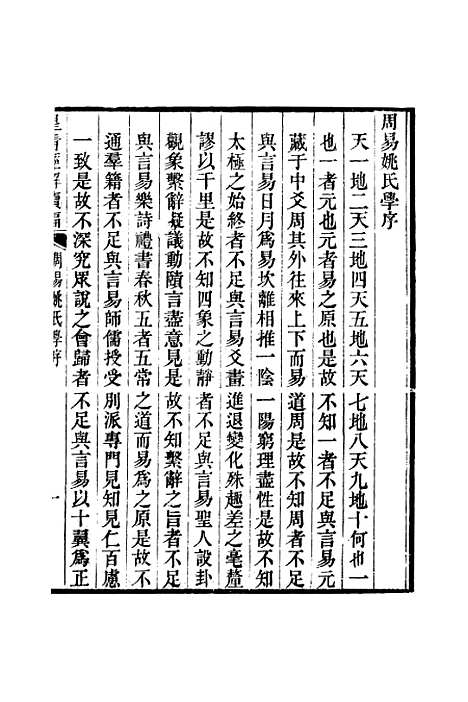 周易姚氏學序
天一地二天三地四天五地六天七地八天九地十何也一
也一者元也元者易之原也是故不知一者不足與言易元
藏于中爻周其外往來上下而易道周是故不知周者不足
與言易日月爲易坎離相推一陰一陽窮理盡性是故不知
太極之始終者不足與言易爻畫進退變化殊趣差之毫釐
謬以千里是故不知四象之動靜者不足與言易聖人設卦
觀象繫辭擬議動賾言盡意見是故不知繫辭之旨者不足
與言易樂詩禮書春秋五者五常之道而易爲之原是故不
通羣籍者不足與言易師儒授受別派專門見知見仁百慮
一致是故不深究眾說之會歸者不足與言易以十翼爲正
皇清經解續編 周易姚氏學序 一